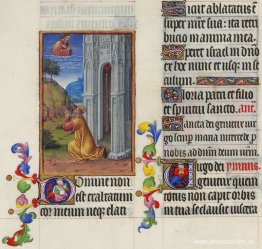 Domine non
est exaltatum
cor meum neq; elati
sicut ablactatus est
super matre sua ita retri
butio in anima mea.
Speret israel in dno
ex hoc nunc et usque in se
culum.
Gloria patri et filio
et spiritui sancto. ant.
Sancta dei genitrix vir
go semper maria intercede pro
nobis ad dominum deum nrm
Virgo dei
genitrix quem
totus non capit orbis in
tua se clausit viscera
www.pinturasoleo.eu